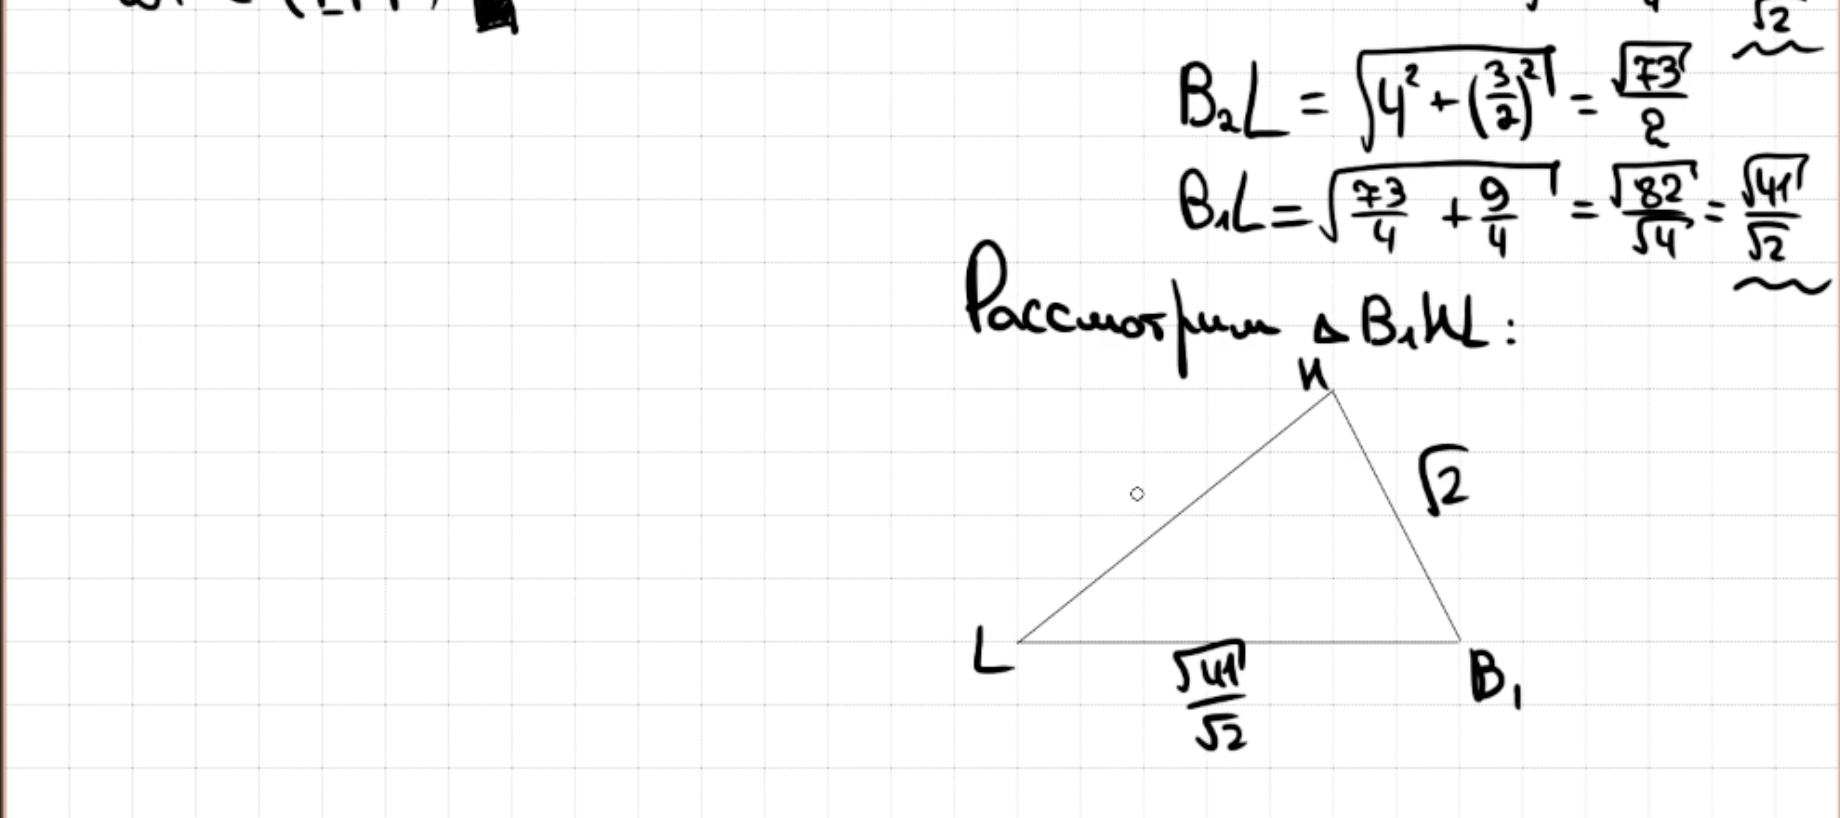 √2
B₂L = √(4² + (3/2)²) = √73/2
B₁L = √(73/4 + 9/4) = √82/√4 = √41/√2
Рассмотрим △ B₁KL:
K
√2
L
√41/√2
B₁